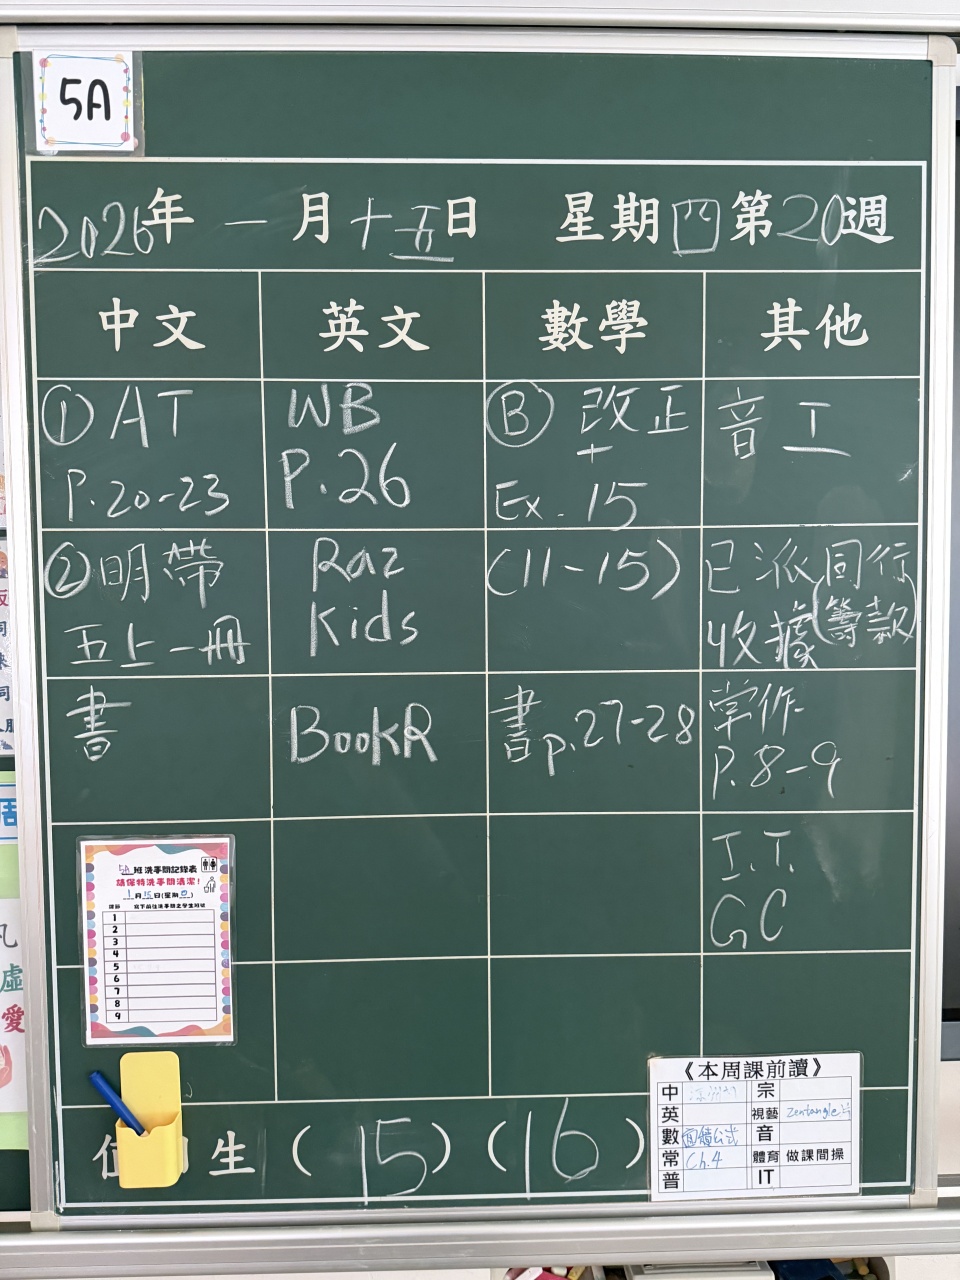 5A
2026年 一月十五日 星期四 第20週
中文 英文 數學 其他
① AT
P.20-23
WB
P.26
Ⓑ 改正
+
Ex. 15
音工
② 明帶
五上一冊
Raz
Kids
(11-15)
已派同行
收據(籌款)
書
BookR
書p.27-28
常作
P.8-9
I.T.
GC
5A班洗手間記錄表
請保持洗手間清潔!
1月15日(星期四)
1
2
3
4
5
6
7
8
9
生 (15) (16)
《本周課前讀》
中 宗
英 視藝 Zentangle
數 面積公式 音
常 Ch.4 體育 做課間操
普 IT